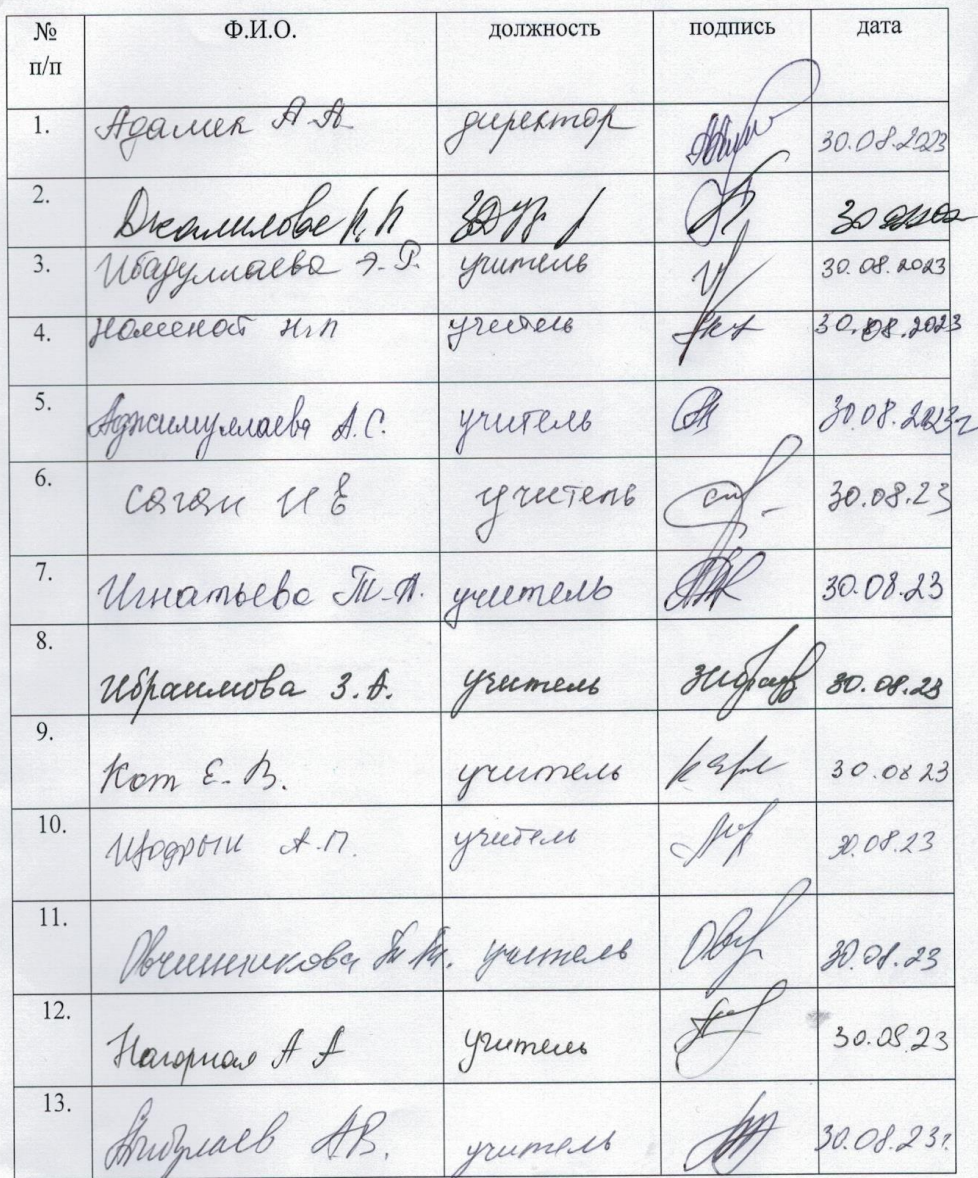 № п/п Ф.И.О. должность подпись дата
1. Адамек А.А. директор 30.08.2023
2. Джамилова
3. Ибадуллаева Э.Р. учитель 30.08.2023
4. учитель 30.08.2023
5. Аджимуллаева А.С. учитель 30.08.2023г
6. Саган И Е учитель 30.08.23
7. Игнатьева Т.А. учитель 30.08.23
8. Ибраимова З.А. учитель 30.08.23
9. Кот Е.В. учитель 30.08 23
10. А.П. учитель 30.08.23
11. Овчинникова учитель 30.08.23
12. Нагорная А А учитель 30.08.23
13. А.В. учитель 30.08.23г.